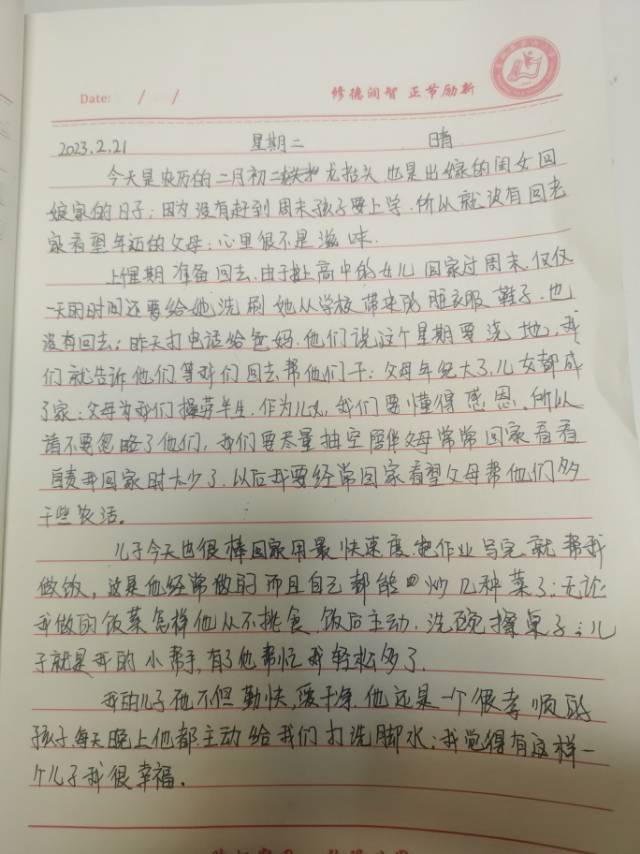 Date: / /
修德润智 正节励新
2023.2.21 星期二 晴
今天是农历的二月初二 龙抬头 也是出嫁的闺女回
娘家的日子;因为没有赶到周末孩子要上学.所以就没有回老
家看望年迈的父母;心里很不是滋味.
上个星期准备回去.由于上高中的女儿回家过周末.仅仅
一天的时间还要给她洗刷她从学校带来的脏衣服鞋子.也
没有回去;昨天打电话给爸妈.他们说这个星期要浇地.我
们就告诉他们等我们回去帮他们干;父母年纪大了.儿女都成
了家;父母为我们操劳半生.作为儿女.我们要懂得感恩.所以
请不要忽略了他们,我们要尽量抽空陪伴父母常常回家看看
自责我回家时太少了.以后我要经常回家看望父母帮他们多
干些农活。
儿子今天也很棒回家用最快速度.把作业写完就帮我
做饭,这是他经常做的而且自己都能炒几种菜了;无论
我做的饭菜怎样他从不挑食.饭后主动.洗碗擦桌子;儿
子就是我的小帮手,有了他帮忙我轻松多了.
我的儿子他不但勤快,爱干净.他还是一个很孝顺的
孩子.每天晚上他都主动给我们打洗脚水;我觉得有这样一
个儿子我很幸福.